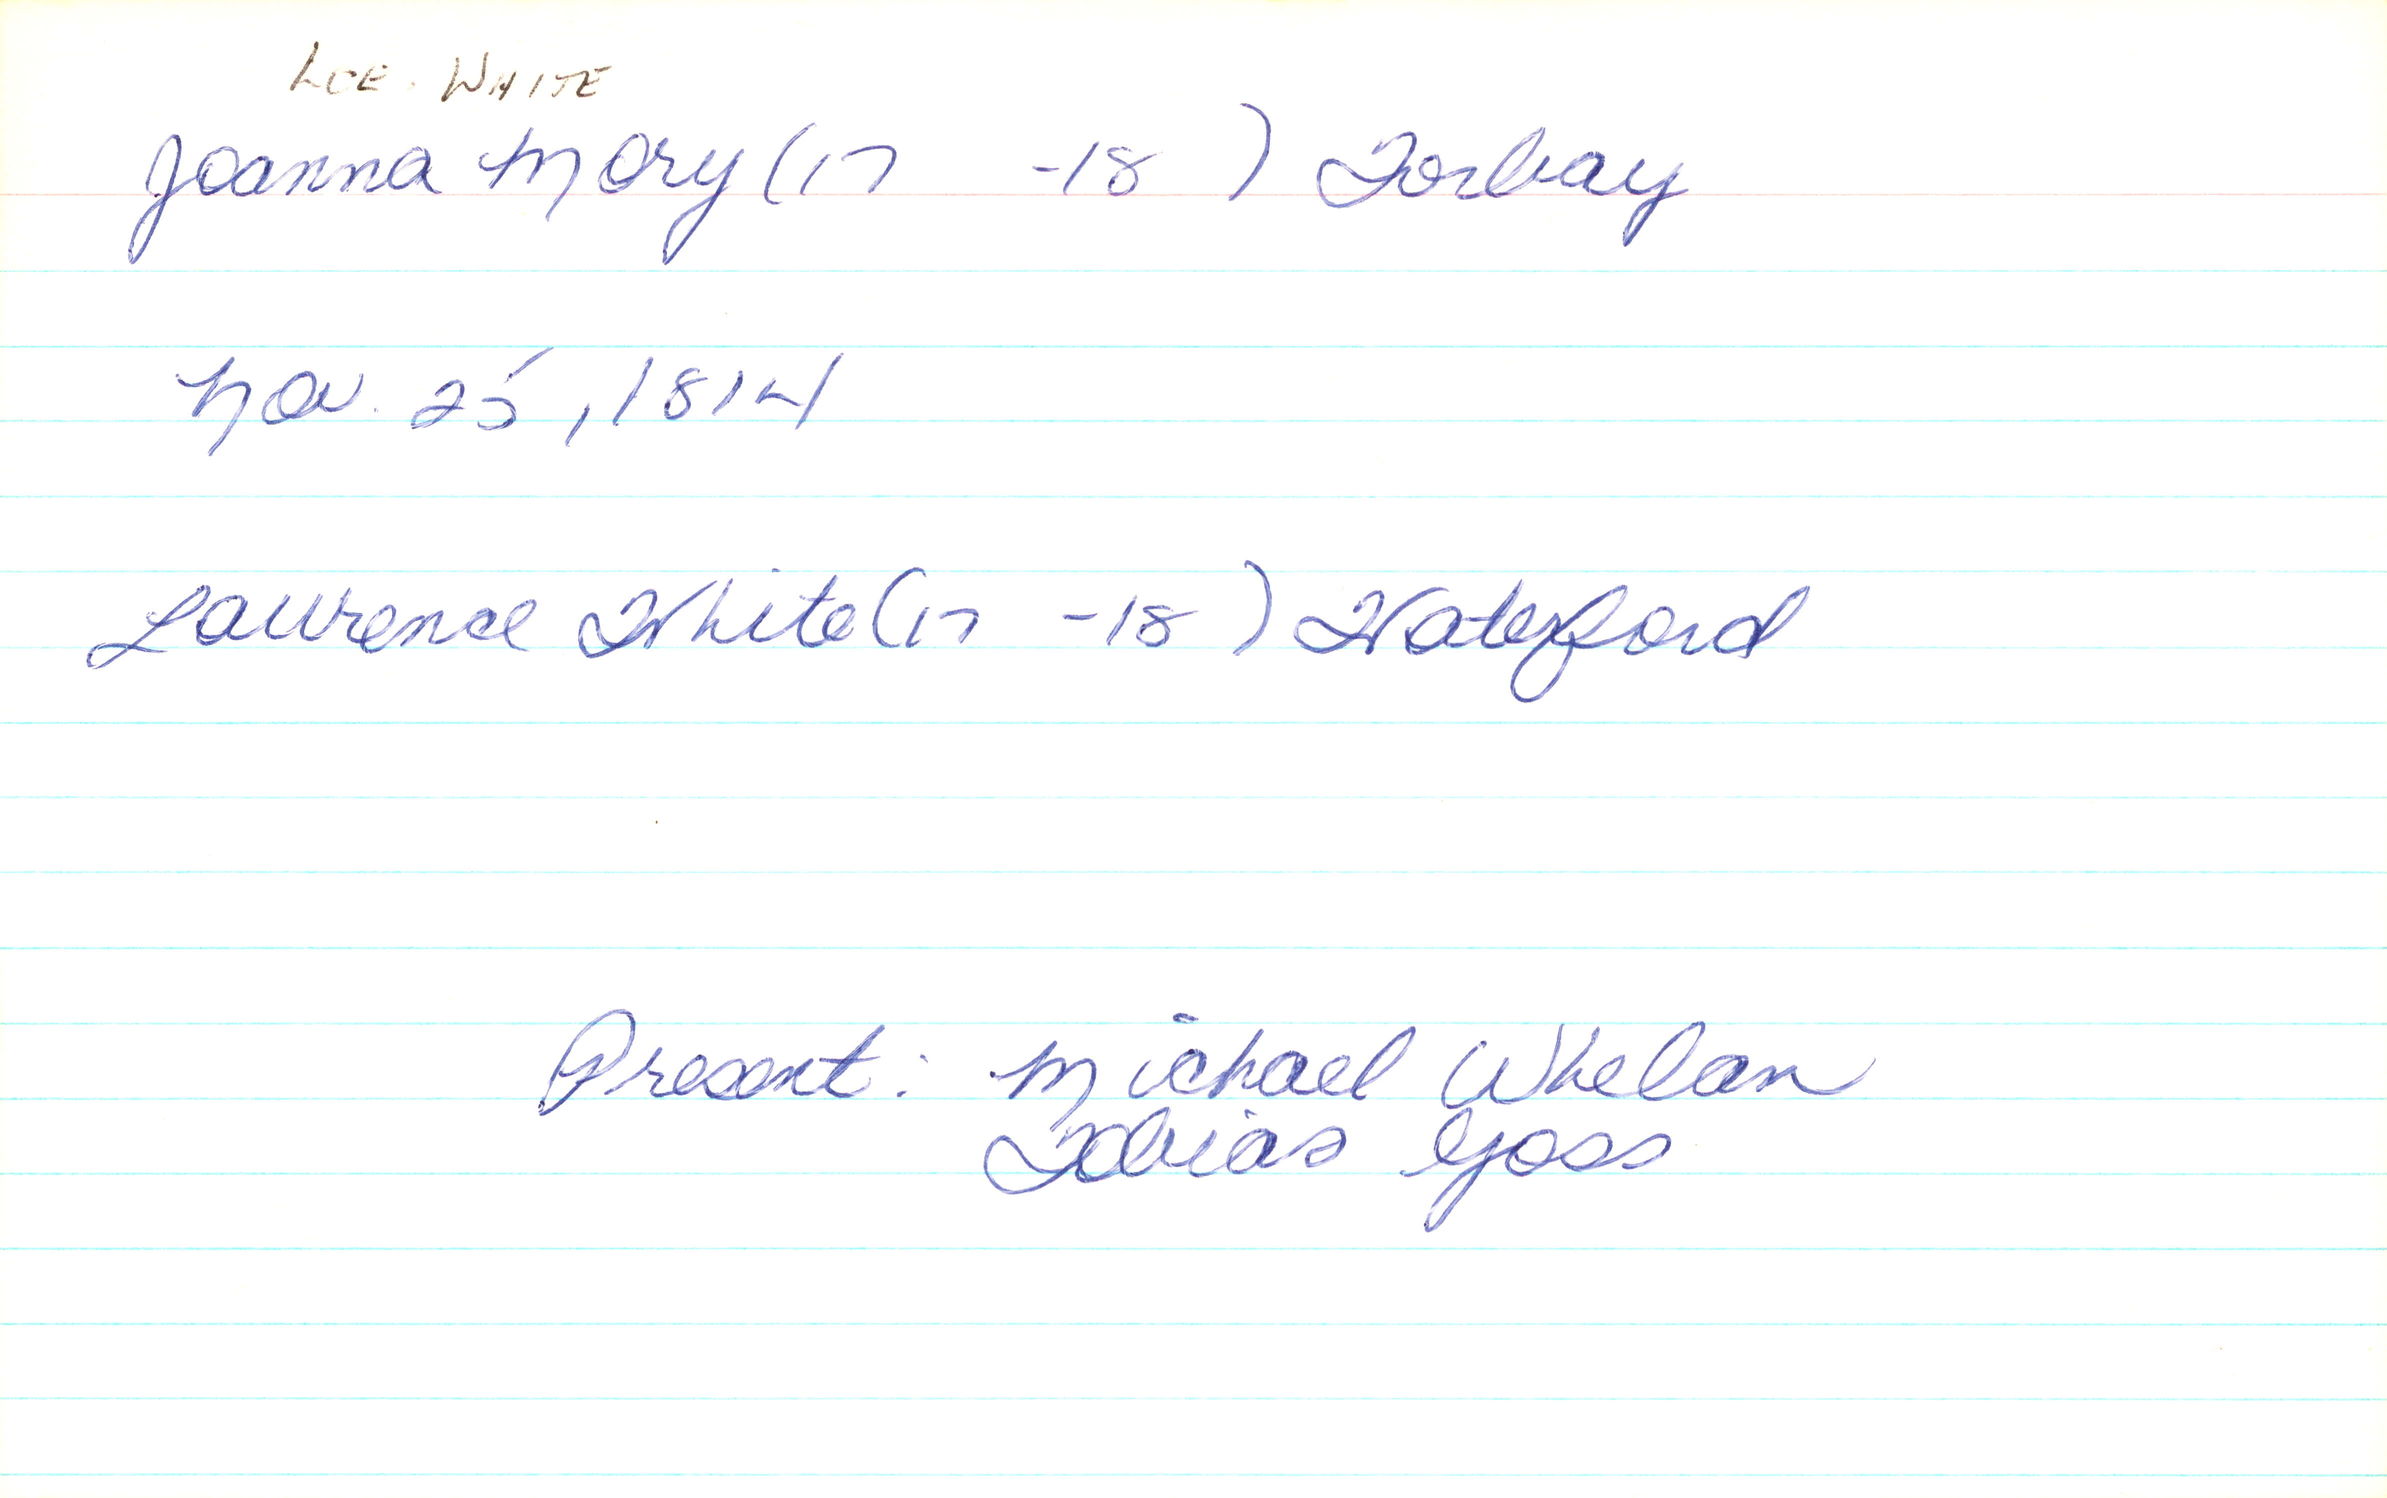 LCE. WHITE
Joanna Mory (17 -18 ) Torbay
Nov. 25, 1814
Lawrence White (17 -18 ) Waterford
Present: Michael Whelan
Tobias Goss